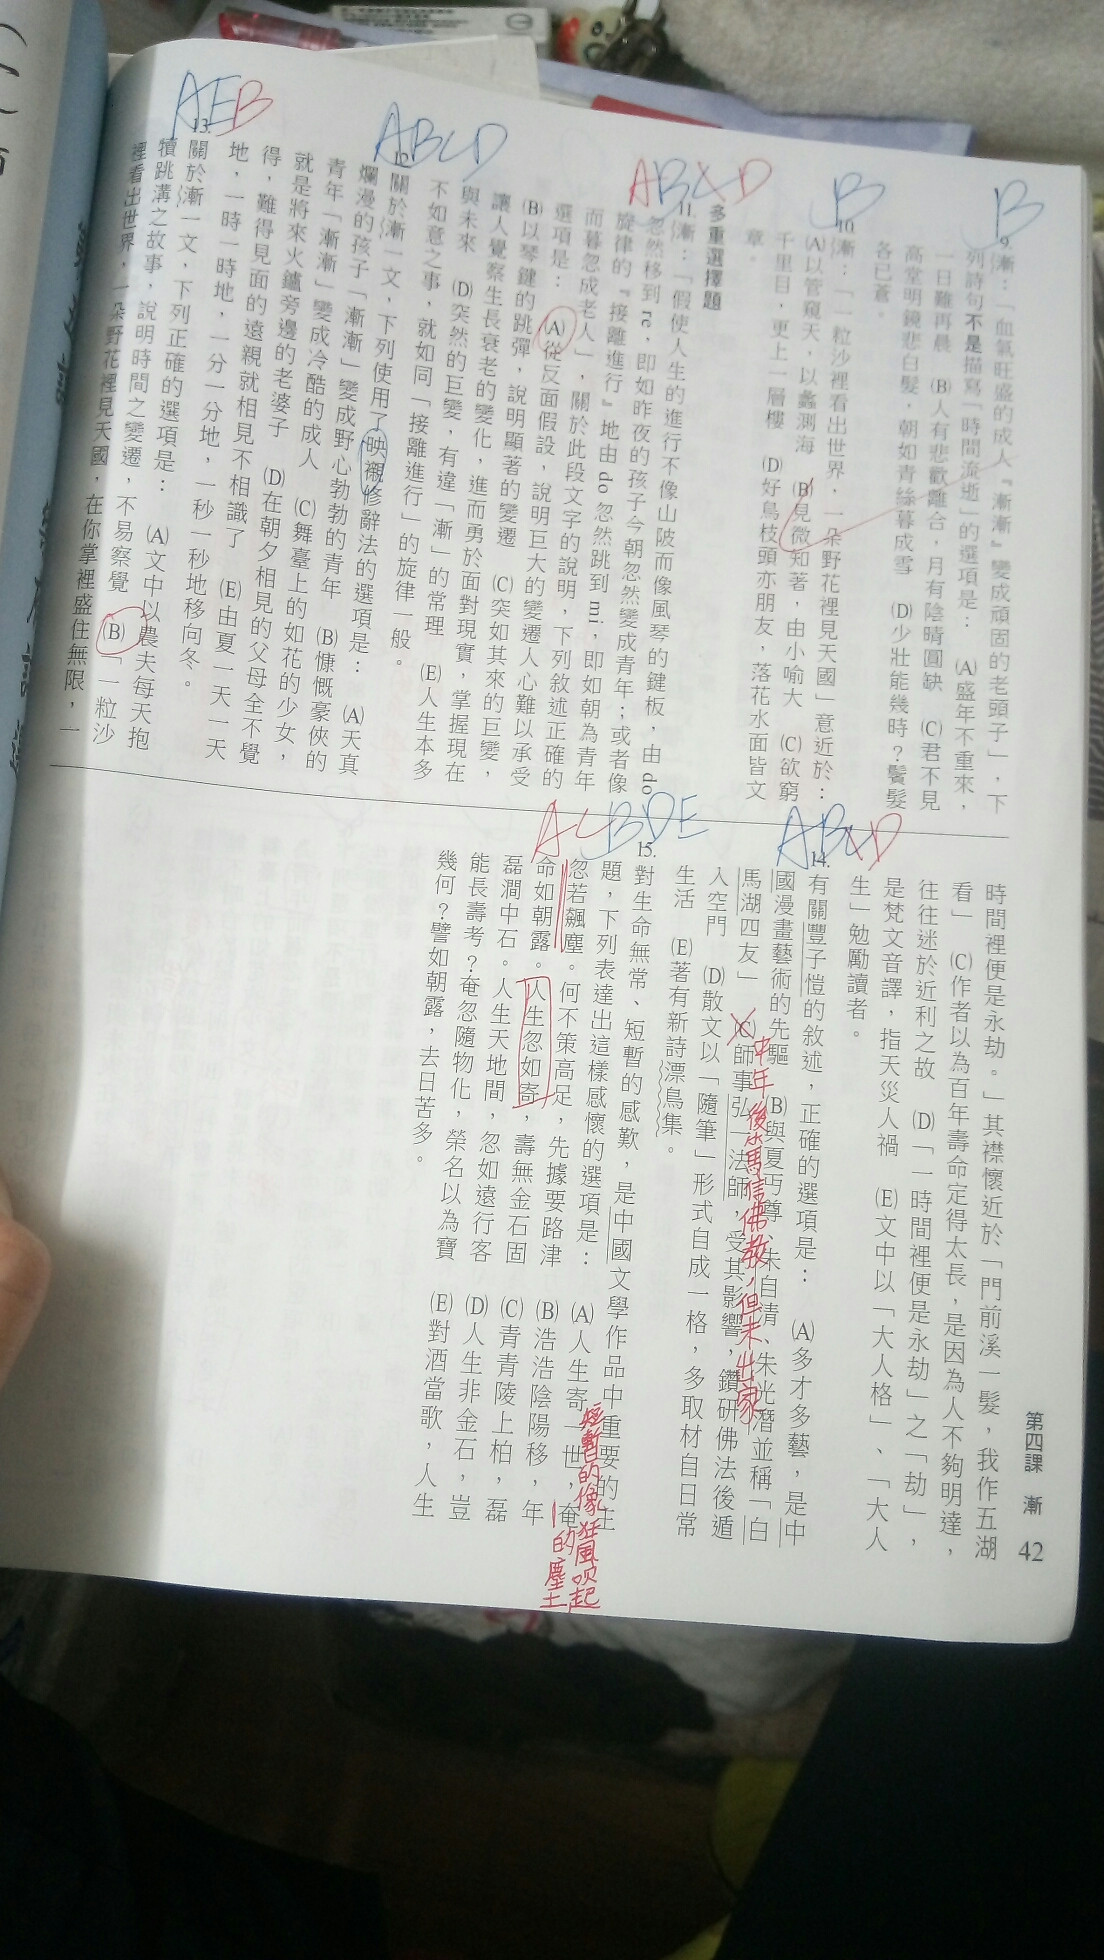 第四課 漸 42
B
9.漸:「血氣旺盛的成人『漸漸』變成頑固的老頭子」,下
列詩句不是描寫「時間流逝」的選項是: (A)盛年不重來,
一日難再晨 (B)人有悲歡離合,月有陰晴圓缺 (C)君不見
高堂明鏡悲白髮,朝如青絲暮成雪 (D)少壯能幾時?鬢髮
各已蒼。
B
10.漸:「一粒沙裡看出世界,一朵野花裡見天國」意近於:
(A)以管窺天,以蠡測海 (B)見微知著,由小喻大 (C)欲窮
千里目,更上一層樓 (D)好鳥枝頭亦朋友,落花水面皆文
章。
多重選擇題
ABD
11.漸:「假使人生的進行不像山陂而像風琴的鍵板,由do
忽然移到re,即如昨夜的孩子今朝忽然變成青年;或者像
旋律的『接離進行』地由do忽然跳到mi,即如朝為青年
而暮忽成老人」,關於此段文字的說明,下列敘述正確的
選項是: (A)從反面假設,說明巨大的變遷人心難以承受
(B)以琴鍵的跳彈,說明顯著的變遷 (C)突如其來的巨變,
讓人覺察生長衰老的變化,進而勇於面對現實,掌握現在
與未來 (D)突然的巨變,有違「漸」的常理 (E)人生本多
不如意之事,就如同「接離進行」的旋律一般。
ABCD
12.關於漸一文,下列使用了映襯修辭法的選項是: (A)天真
爛漫的孩子「漸漸」變成野心勃勃的青年 (B)慷慨豪俠的
青年「漸漸」變成冷酷的成人 (C)舞臺上的如花的少女,
就是將來火鑪旁邊的老婆子 (D)在朝夕相見的父母全不覺
得,難得見面的遠親就相見不相識了 (E)由夏一天一天
地,一時一時地,一分一分地,一秒一秒地移向冬。
AEB
13.關於漸一文,下列正確的選項是: (A)文中以農夫每天抱
犢跳溝之故事,說明時間之變遷,不易察覺 (B)「一粒沙
裡看出世界,一朵野花裡見天國,在你掌裡盛住無限,一
時間裡便是永劫。」其襟懷近於「門前溪一髮,我作五湖
看」 (C)作者以為百年壽命定得太長,是因為人不夠明達,
往往迷於近利之故 (D)「一時間裡便是永劫」之「劫」,
是梵文音譯,指天災人禍 (E)文中以「大人格」、「大人
生」勉勵讀者。
ABD
14.有關豐子愷的敘述,正確的選項是: (A)多才多藝,是中
國漫畫藝術的先驅 (B)與夏丏尊、朱自清、朱光潛並稱「白
馬湖四友」 (C)師事弘一法師,受其影響,鑽研佛法後遁
入空門 (D)散文以「隨筆」形式自成一格,多取材自日常
生活 (E)著有新詩漂鳥集。
中年後篤信佛教,但未出家
ACBDE
15.對生命無常、短暫的感歎,是中國文學作品中重要的主
題,下列表達出這樣感懷的選項是: (A)人生寄一世,奄
忽若飆塵。何不策高足,先據要路津 (B)浩浩陰陽移,年
命如朝露。人生忽如寄,壽無金石固 (C)青青陵上柏,磊
磊澗中石。人生天地間,忽如遠行客 (D)人生非金石,豈
能長壽考?奄忽隨物化,榮名以為寶 (E)對酒當歌,人生
幾何?譬如朝露,去日苦多。
短暫的像狂風吹起
的塵土